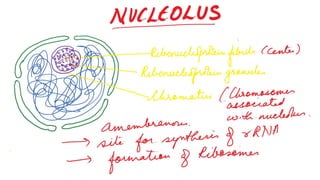 NUCLEOLUS
Ribonucleoprotein fibrils (center)
Ribonucleoprotein granules
Chromatin (Chromosomes
associated
with nucleolus.
amembranous.
→ site for synthesis of rRNA
→ formation of Ribosomes